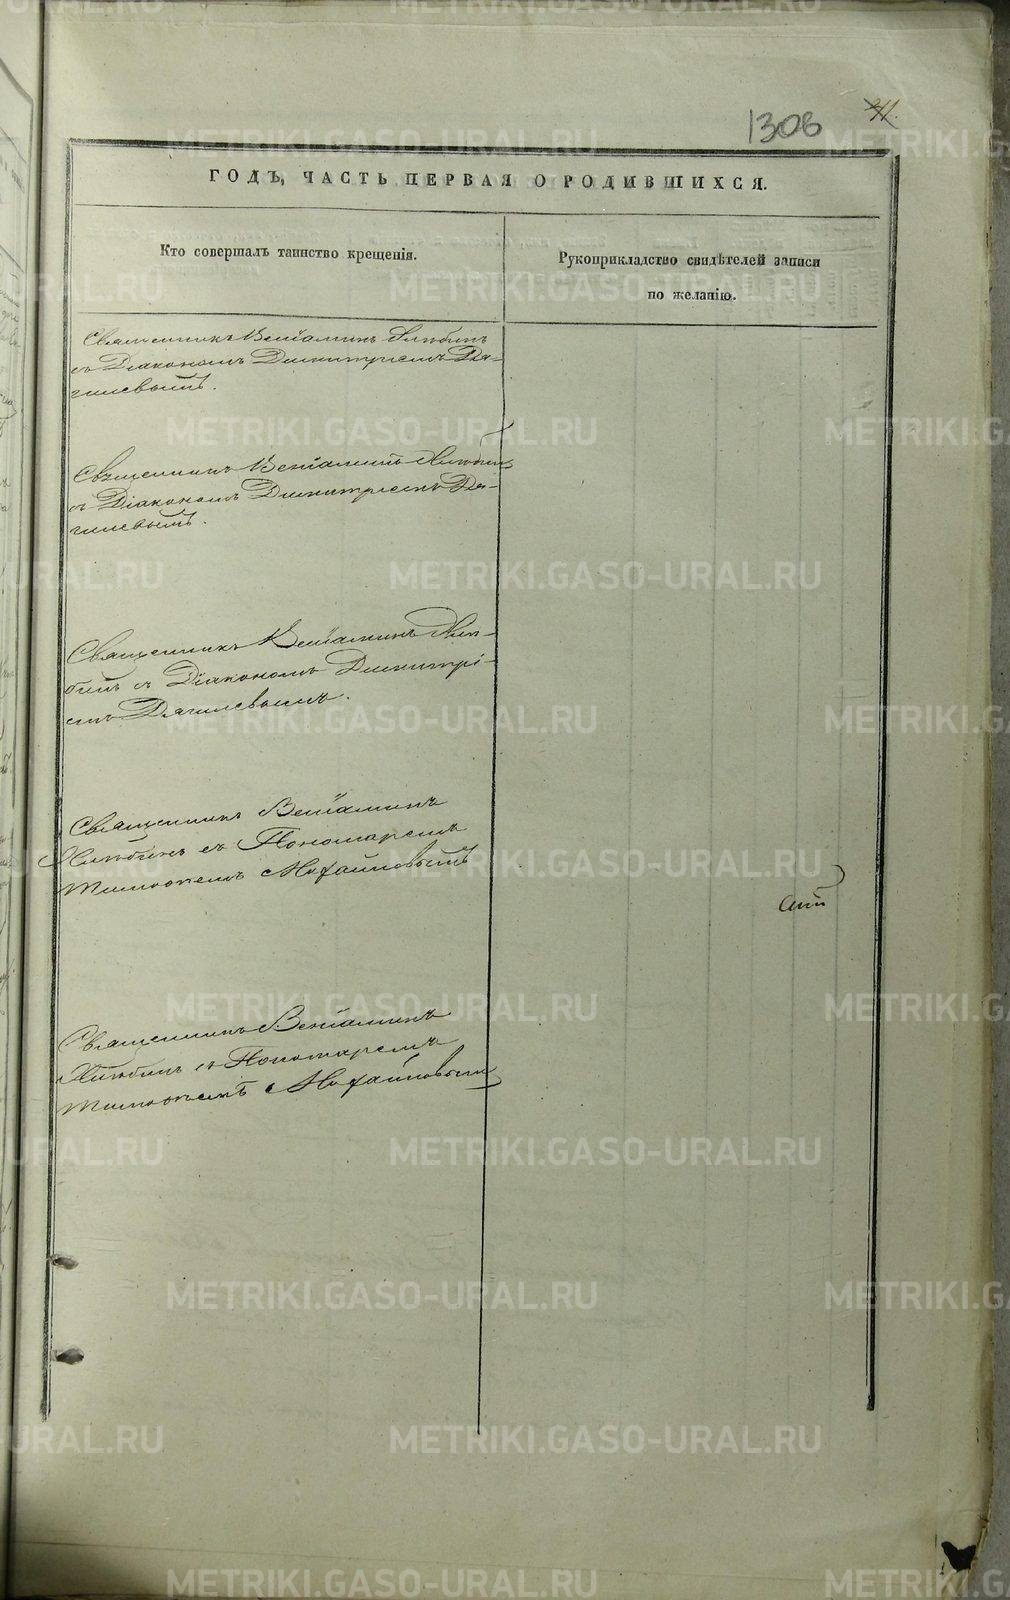 1306
41.
ГОДЪ, ЧАСТЬ ПЕРВАЯ О РОДИВШИХСЯ.
Кто совершалъ таинство крещенія.
Рукоприкладство свидѣтелей записи
по желанію.
Священникъ Веніаминъ Хлюбинъ
съ Діакономъ Димитріемъ Дя-
гилевымъ.
Священникъ Веніаминъ Хлюбинъ
съ Діакономъ Димитріемъ Дя-
гилевымъ.
Священникъ Веніаминъ Хлю-
бинъ съ Діакономъ Димитрі-
емъ Дягилевымъ.
Священникъ Веніаминъ
Хлюбинъ съ Пономаремъ
Тимоѳеемъ
Священникъ Веніаминъ
Хлюбинъ съ Пономаремъ
Тимоѳеемъ
METRIKI.GASO-URAL.RU